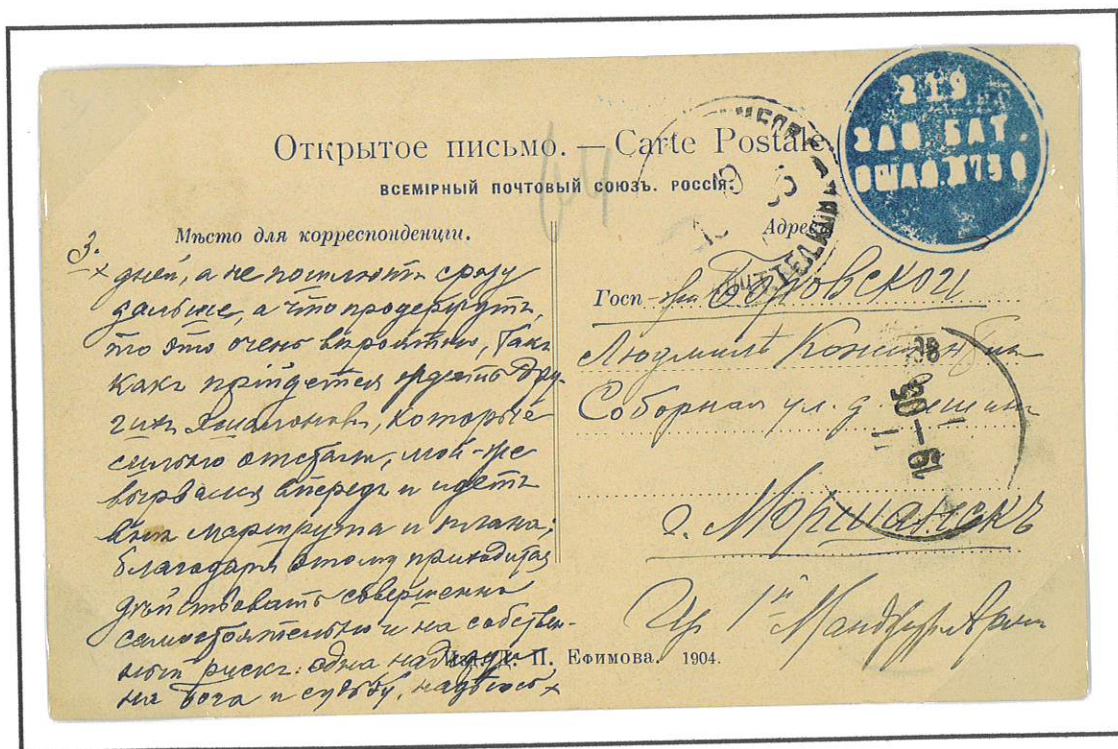 Открытое письмо. — Carte Postale
ВСЕМІРНЫЙ ПОЧТОВЫЙ СОЮЗЪ. РОССІЯ.
219
ЗАП БАТ.
Мѣсто для корреспонденціи.
3.
дней, а не пошлютъ сразу
дальше, а что продержутъ,
то это очень вѣроятно, такъ
какъ прійдется ждать дру-
гихъ эшалоновъ, которые
сильно отстали, мой-же
вырвался впередъ и идетъ
внѣ маршрута и плана;
благодаря этому приходится
дѣйствовать совершенно
самостоятельно и на собствен-
ный рискъ: одна надежда
на Бога и судьбу, надѣюсь
Адресъ
Госп-жѣ
Людмилѣ
Соборная ул. д.
г. Моршанскъ
Изъ 1й Манджур. Арміи
19-1 05
64
Д. П. Ефимова. 1904.